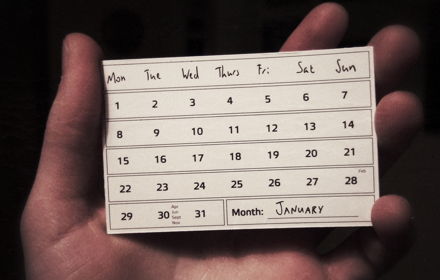 Mon Tue Wed Thurs Fri Sat Sun
1 2 3 4 5 6 7
8 9 10 11 12 13 14
15 16 17 18 19 20 21
22 23 24 25 26 27 28 Feb
29 30 Apr Jun Sept Nov 31 Month: JANUARY